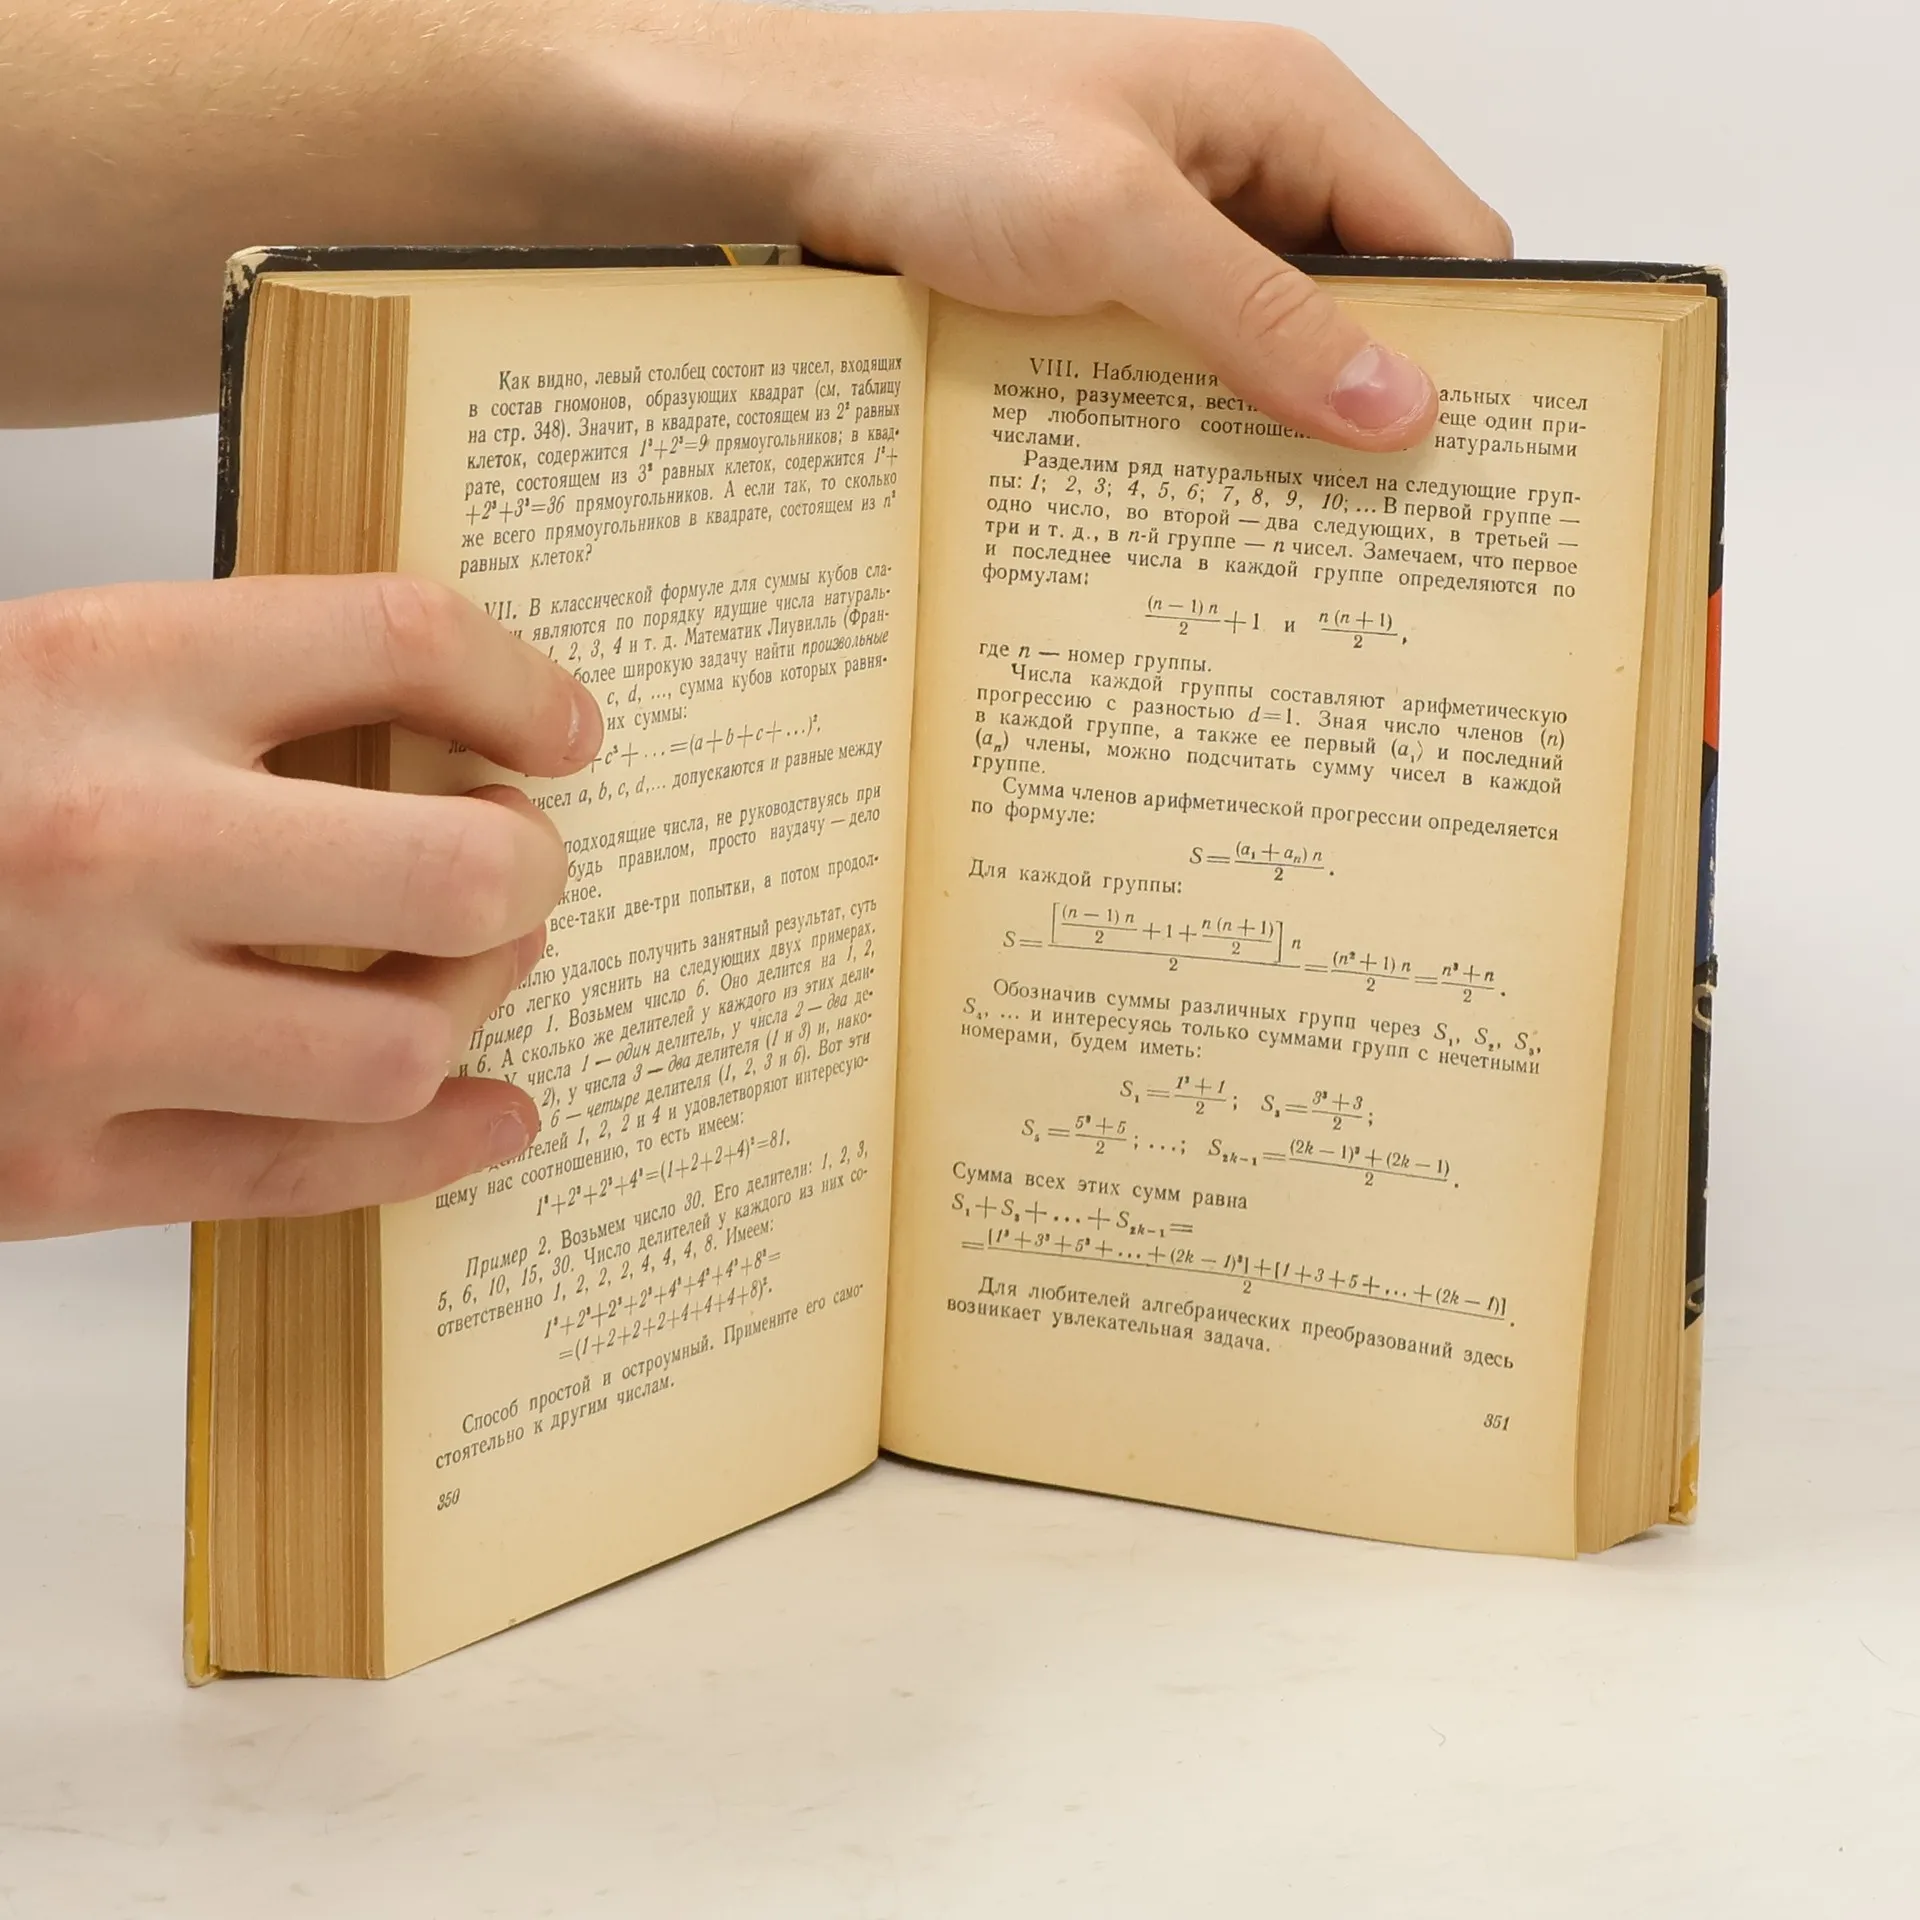 Как видно, левый столбец состоит из чисел, входящих
в состав гномонов, образующих квадрат (см. таблицу
на стр. 348). Значит, в квадрате, состоящем из 2² равных
клеток, содержится 1³+2³=9 прямоугольников; в квад-
рате, состоящем из 3² равных клеток, содержится 1³+
+2³+3³=36 прямоугольников. А если так, то сколько
же всего прямоугольников в квадрате, состоящем из n²
равных клеток?
VII. В классической формуле для суммы кубов сла-
являются по порядку идущие числа натураль-
1, 2, 3, 4 и т. д. Математик Лиувилль (Фран-
более широкую задачу найти произвольные
c, d, ..., сумма кубов которых равня-
их суммы:
+c³+...=(a+b+c+...)².
чисел a, b, c, d,... допускаются и равные между
подходящие числа, не руководствуясь при
будь правилом, просто наудачу — дело
все-таки две-три попытки, а потом продол-
удалось получить занятный результат, суть
легко уяснить на следующих двух примерах.
Пример 1. Возьмем число 6. Оно делится на 1, 2,
и 6. А сколько же делителей у каждого из этих дели-
У числа 1 — один делитель, у числа 2 — два де-
2), у числа 3 — два делителя (1 и 3) и, нако-
6 — четыре делителя (1, 2, 3 и 6). Вот эти
делителей 1, 2, 2 и 4 и удовлетворяют интересую-
щему нас соотношению, то есть имеем:
1³+2³+2³+4³=(1+2+2+4)²=81.
Пример 2. Возьмем число 30. Его делители: 1, 2, 3,
5, 6, 10, 15, 30. Число делителей у каждого из них со-
ответственно 1, 2, 2, 2, 4, 4, 4, 8. Имеем:
1³+2³+2³+2³+4³+4³+4³+8³=
=(1+2+2+2+4+4+4+8)².
Способ простой и остроумный. Примените его само-
стоятельно к другим числам.
350
VIII. Наблюдения альных чисел
можно, разумеется, вести еще один при-
мер любопытного натуральными
числами.
Разделим ряд натуральных чисел на следующие груп-
пы: 1; 2, 3; 4, 5, 6; 7, 8, 9, 10; ... В первой группе —
одно число, во второй — два следующих, в третьей —
три и т. д., в n-й группе — n чисел. Замечаем, что первое
и последнее числа в каждой группе определяются по
формулам:
(n — 1) n / 2 + 1 и n (n + 1) / 2,
где n — номер группы.
Числа каждой группы составляют арифметическую
прогрессию с разностью d=1. Зная число членов (n)
в каждой группе, а также ее первый (a₁) и последний
(aₙ) члены, можно подсчитать сумму чисел в каждой
группе.
Сумма членов арифметической прогрессии определяется
по формуле:
S = (a₁ + aₙ) n / 2.
Для каждой группы:
S = [(n — 1) n / 2 + 1 + n (n + 1) / 2] n / 2 = (n² + 1) n / 2 = n³ + n / 2.
Обозначив суммы различных групп через S₁, S₂, S₃,
S₄, ... и интересуясь только суммами групп с нечетными
номерами, будем иметь:
S₁ = 1³ + 1 / 2; S₃ = 3³ + 3 / 2;
S₅ = 5³ + 5 / 2; ...; S₂ₖ₋₁ = (2k — 1)³ + (2k — 1) / 2.
Сумма всех этих сумм равна
S₁ + S₃ + ... + S₂ₖ₋₁ =
= [1³ + 3³ + 5³ + ... + (2k — 1)³] + [1 + 3 + 5 + ... + (2k — 1)] / 2.
Для любителей алгебраических преобразований здесь
возникает увлекательная задача.
351